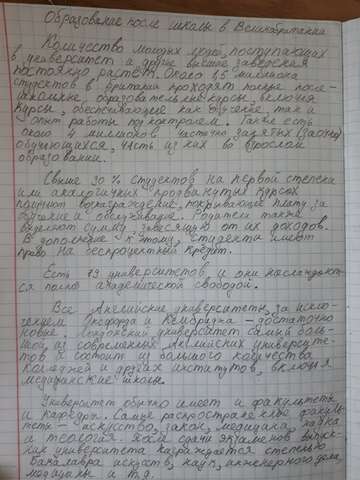 Образование после школы в Великобритании
Количество молодых людей, поступающих
в университет и другие высшие заведения
постоянно растет. Около 1,5 миллиона
студентов в Британии проходят полные после-
школьные образовательные курсы, включая
курсы, обеспечивающие как изучение, так и
опыт работы под контролем. Также есть
около 4 миллионов частично занятых (заочно)
обучающихся, часть из них во взрослом
образовании.
Свыше 90% студентов на первой степени
или аналогичных продвинутых курсах
получают вознаграждение, покрывающее плату за
обучение и обслуживание. Родители также
выделяют сумму, зависящую от их доходов.
В дополнение к этому, студенты имеют
право на беспроцентный кредит.
Есть 93 университетов, и они наслаждают-
ся полной академической свободой.
Все Английские университеты, за исклю-
чением Оксфорда и Кембриджа – достаточно
новые. Лондонский университет самый боль-
шой из современных Английских университе-
тов и состоит из большого количества
колледжей и других институтов, включая
медицинские школы.
Университет обычно имеет и факультеты
и кафедры. Самые распространенные факуль-
теты – искусство, закон, медицина, наука
и теология. После сдачи экзаменов выпуск-
ник университета награждается степенью
бакалавра искусств, наук, инженерного дела,
медицины и т.д.